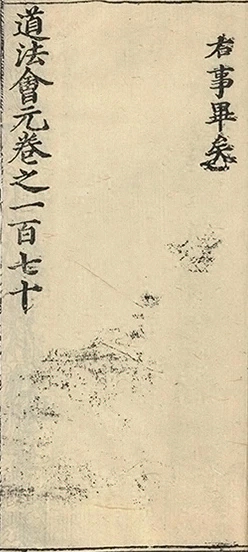 君事畢矣
道法會元卷之一百七十